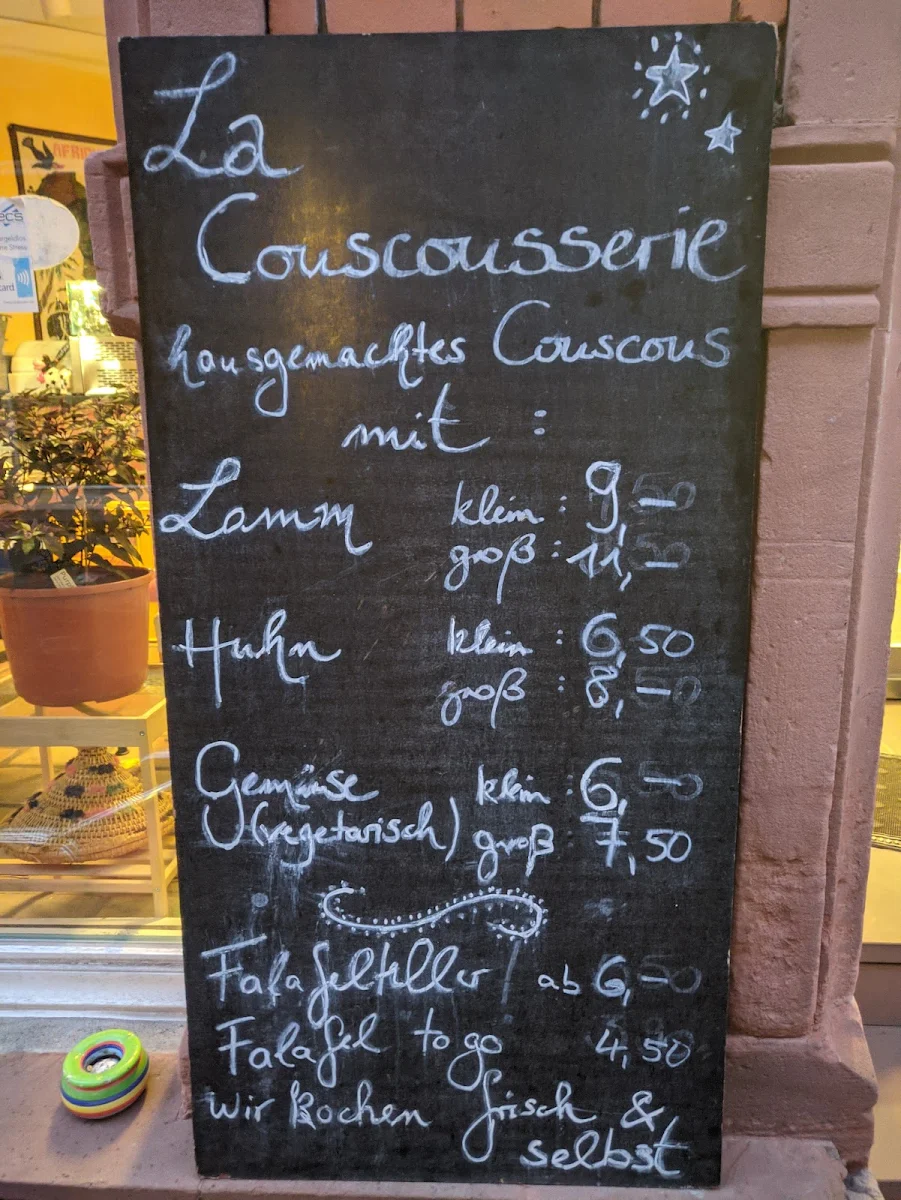 La
Couscousserie
hausgemachtes Couscous
mit :
Lamm klein : 9,–
groß : 11,–
Huhn klein : 6,50
groß : 8,–
Gemüse klein : 6,–
(vegetarisch) groß : 7,50
Falafelteller ab 6,–
Falafel to go 4,50
wir kochen frisch &
selbst